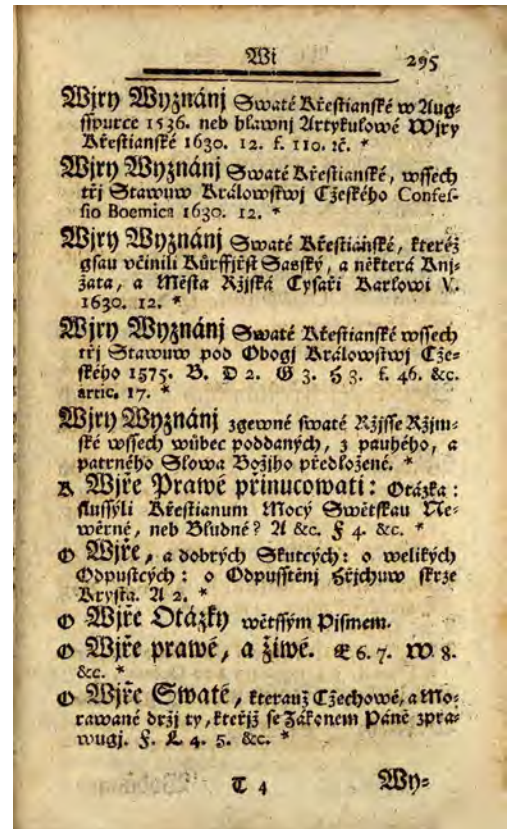 Wi 295
Wjry Wyznánj Swaté Křestianské w Aug-
sspurce 1536. neb hlawnj Artykulowé Wjry
Křestianské 1630. 12. f. 110. ꝛč. *
Wjry Wyznánj Swaté Křestianské, wssech
třj Stawuw Králowstwj Cžeského Confes-
sio Boemica 1630. 12. *
Wjry Wyznánj Swaté Křestiánské, kteréž
gsau včinili Kůrffjřst Sasský, a některá Knj-
žata, a Města Ržjská Cysaři Karlowi V.
1630. 12. *
Wjry Wyznánj Swaté Křestianské wssech
třj Stawuw pod Obogj Králowstwj Cže-
ského 1575. B. D 2. G 3. H 3. f. 46. &c.
artic. 17. *
Wjry Wyznánj zgewné swaté Ržjsse Ržjm-
ské wssech wůbec poddaných, z pauhého, a
patrného Slowa Božjho předložené. *
K Wjře Prawé přinucowati: Otázka:
slussýli Křestianum Mocý Swětskau Ne-
wěrné, neb Bludné? A &c. F 4. &c. *
O Wjře, a dobrých Skutcých: o welikých
Odpustcých: o Odpusstěnj Hřjchuw skrze
Krysta. A 2. *
O Wjře Otázky wětssým Pjsmem.
O Wjře prawé, a žiwé. E 6. 7. W 8.
&c. *
O Wjře Swaté, kterauž Cžechowé, a Mo-
rawané držj ty, kteřjž se Zákonem Páně zpra-
wugj. F. L 4. 5. &c. *
T 4 Wy-